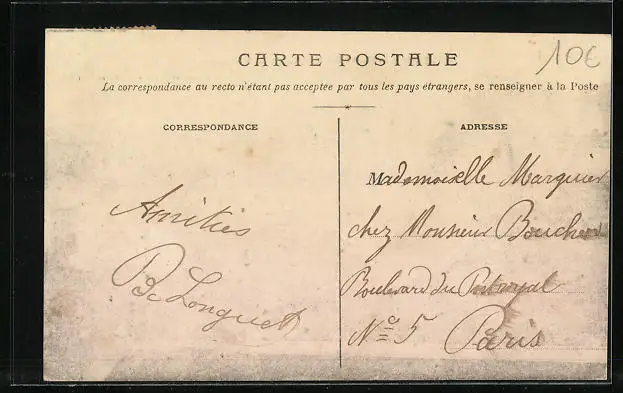 10€
CARTE POSTALE
La correspondance au recto n'étant pas acceptée par tous les pays étrangers, se renseigner à la Poste
CORRESPONDANCE
ADRESSE
Amitiés
Longuet
Mademoiselle Marquier
chez Monsieur
Boulevard du Port royal
Nº 5 Paris